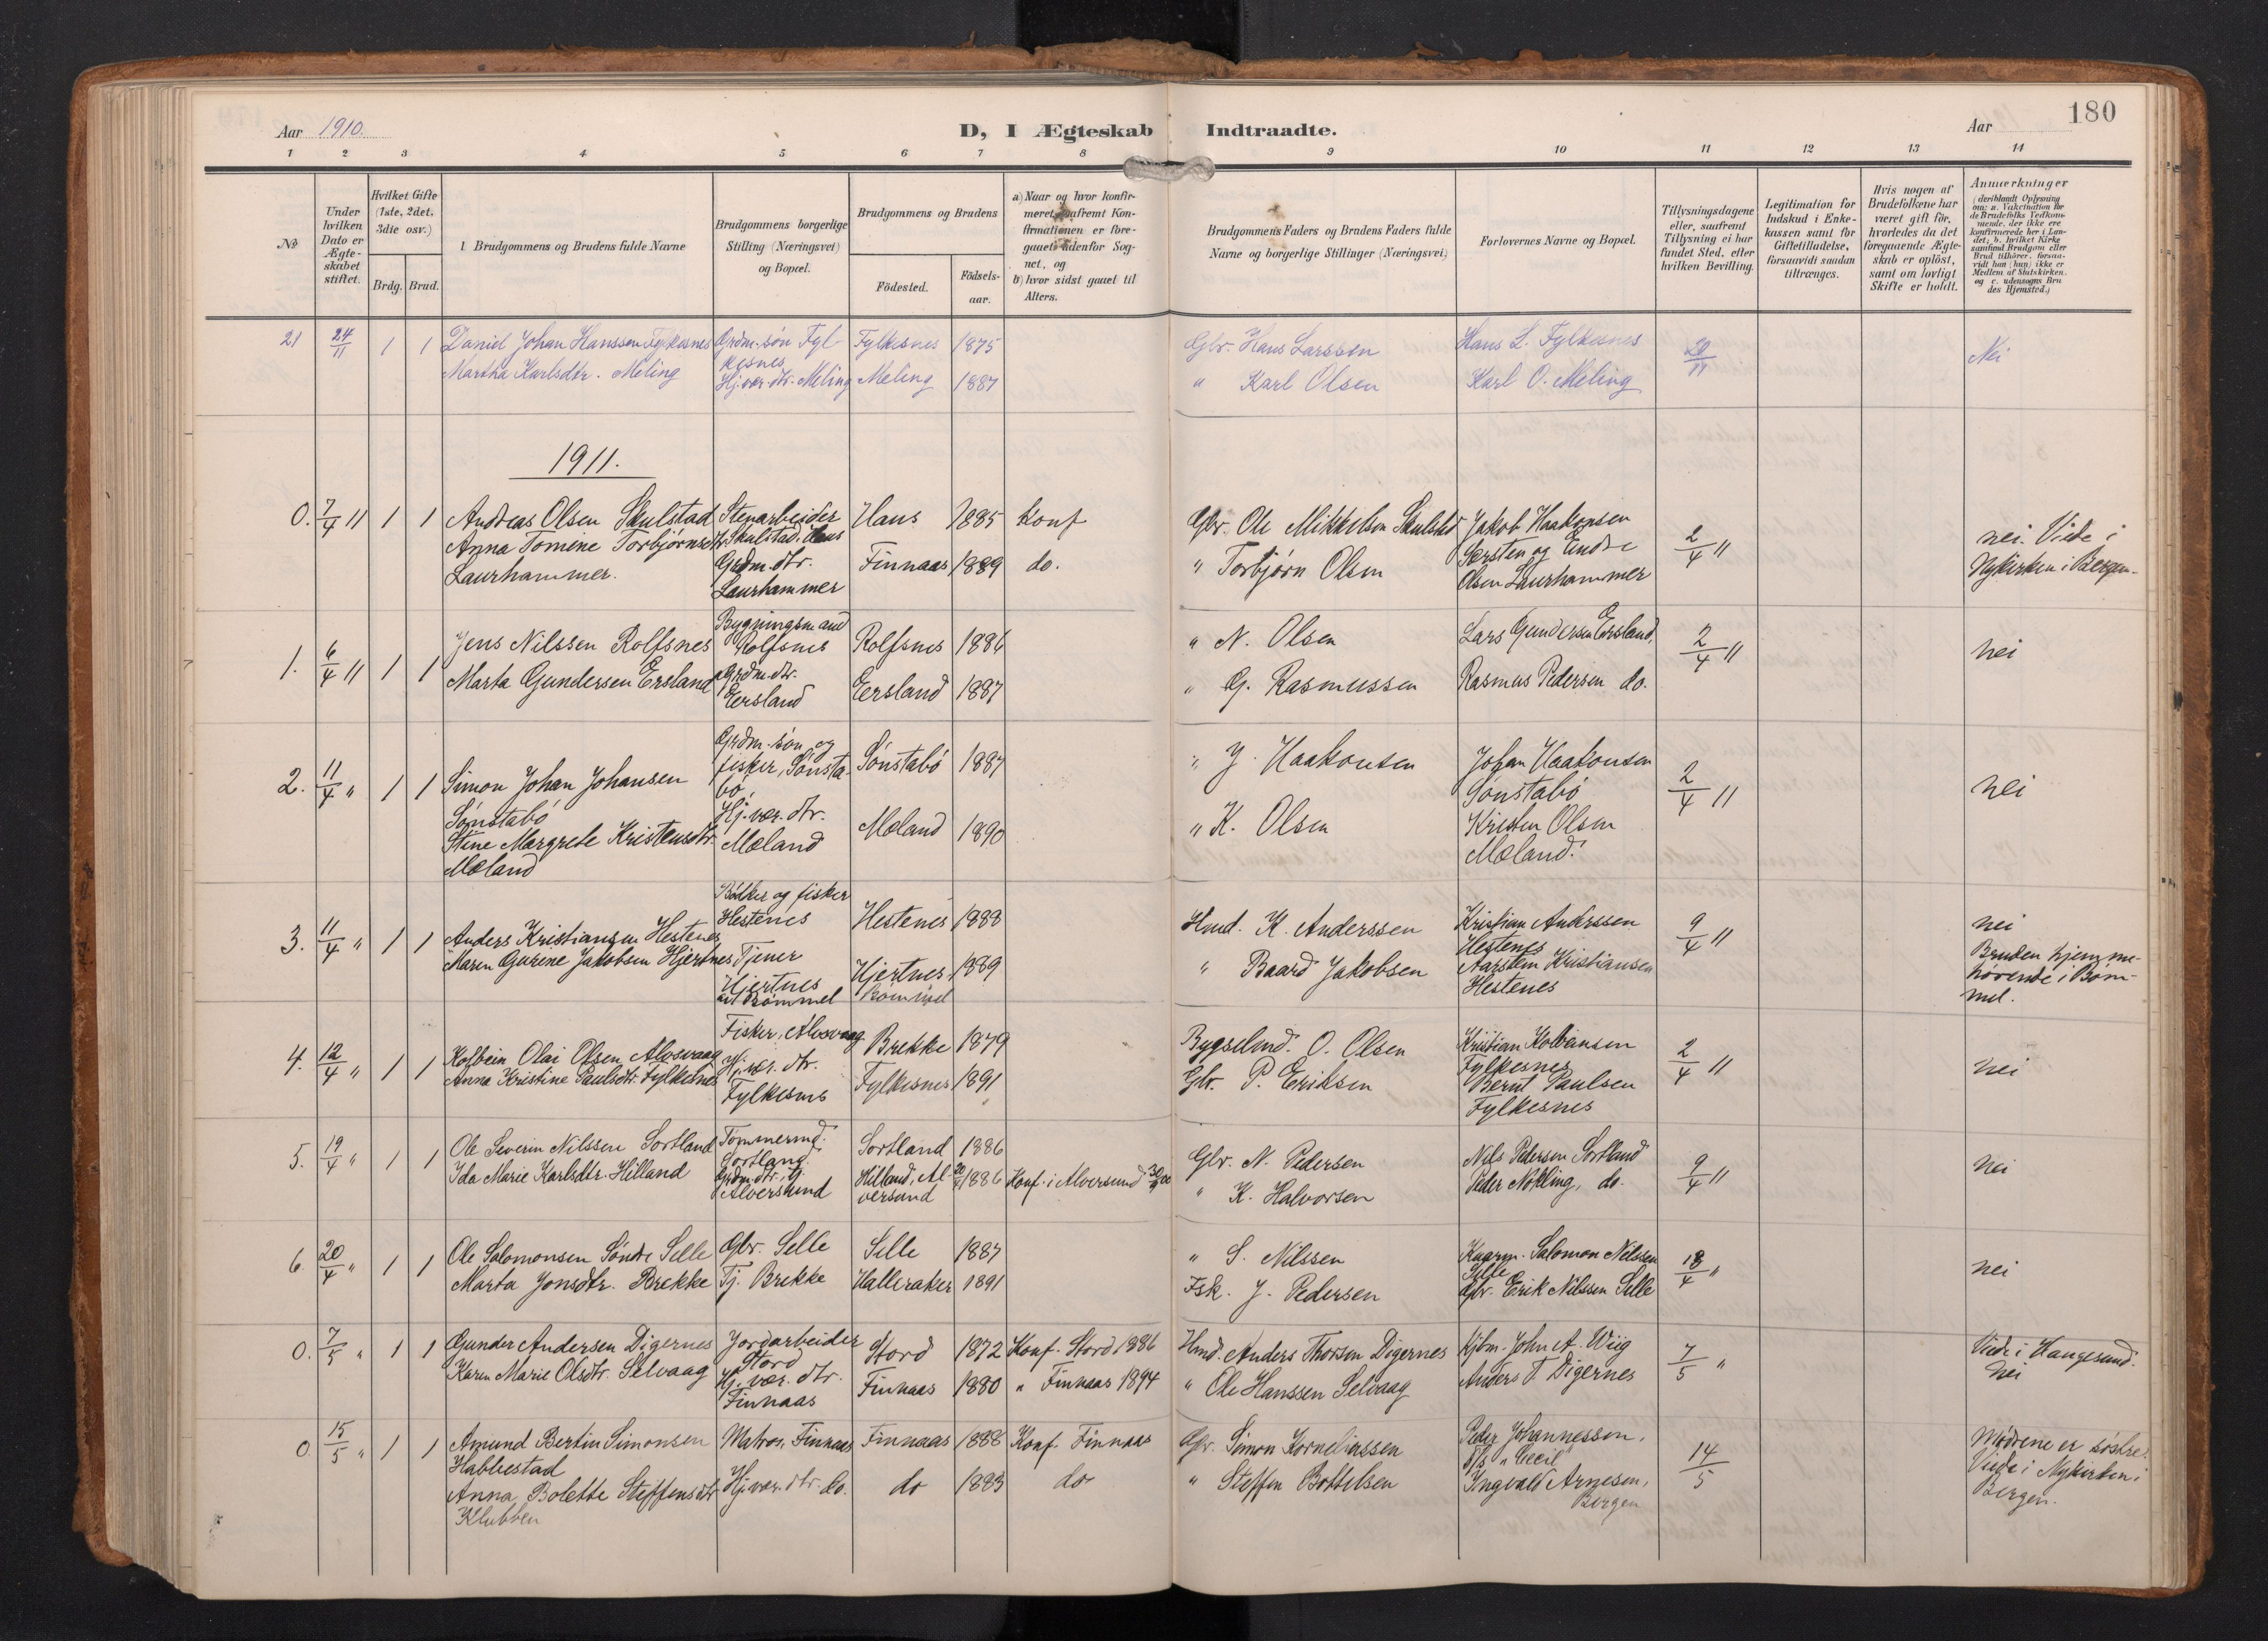 180
Aar 1910.
D, I Ægteskab Indtraadte.
Aar
1 2 3 4 5 6 7 8 9 10 11 12 13 14
No
Under hvilken Dato er Ægteskabet stiftet.
Hvilket Gifte (1ste, 2det, 3die osv.)
Brdg. Brud.
Brudgommens og Brudens fulde Navne
Brudgommens borgerlige Stilling (Næringsvei) og Bopæl.
Brudgommens og Brudens
Födested.
Födsels-aar.
a) Naar og hvor konfirmeret, saafremt Konfirmationen er foregaaet udenfor Sognet, og
b) hvor sidst gaaet til Alters.
Brudgommens Faders og Brudens Faders fulde Navne og borgerlige Stillinger (Næringsvei)
Forlovernes Navne og Bopæl.
Tillysningsdagene eller, saafremt Tillysning ei har fundet Sted, efter hvilken Bevilling.
Legitimation for Indskud i Enkekassen samt for Giftetilladelse, forsaavidt saadan tiltrænges.
Hvis nogen af Brudefolkene har været gift för, hvorledes da det foregaaende Ægteskab er oplöst, samt om lovligt Skifte er holdt.
Anmærkninger (deriblandt Oplysning om: a. Vakcination for de Brudefolks Vedkommende, der ikke ere konfirmerede her i Landet; b. hvilket Kirkesamfund Brudgom eller Brud tilhörer, forsaavidt han (hun) ikke er Medlem af Statskirken. og c. udensogns Brudes Hjemsted.)
21 24/11 1 1 Daniel Johan Hanssen Fylkesnes Grdm.søn Fylkesnes Fylkesnes 1875 Gbr. Hans Larssen Hans L. Fylkesnes 20/11 Nei
Martha Karlsdtr. Meling Hj.vær. dtr. Meling Meling 1887 " Karl Olsen Karl O. Meling
1911.
0. 7/4 11 1 1 Andreas Olsen Skulstad Stenarbeider Skulstad, Haus Haus 1885 Konf Gbr. Ole Mikkelsen Skulstad Jakob Haakonsen 2/4 11 nei. Viede i Nykirken i Bergen.
Anna Tomine Torbjørnsdtr. Laurhammer. Grdm.dtr. Laurhammer Finnaas 1889 do. " Torbjørn Olsen og Endre Olsen Laurhammer
1. 6/4 11 1 1 Jens Nilssen Rolfsnes Bygningsmand Rolfsnes Rolfsnes 1886 " N. Olsen Lars Gundersen Eersland, 2/4 11 nei
Marta Gundersen Ersland Grdm.dtr. Eersland Eersland 1887 " G. Rasmussen Rasmus Pedersen do.
2. 11/4 " 1 1 Simon Johan Johansen Sønstabø Grdm.søn og fisker, Sønstabø Sønstabø 1887 " J. Haakonsen Johan Haakonsen Sønstabø 2/4 11 nei
Stine Margrete Kristensdtr. Mæland Hj.vær. dtr. Mæland Mæland 1890 " K. Olsen Kristen Olsen Mæland.
3. 11/4 " 1 1 Anders Kristiansen Hestenes Bødker og fisker Hestenes Hestenes 1888 Hmd. K. Anderssen Kristian Anderssen Hestenes 9/4 11 nei
Maren Gurine Jakobsen Hjertnes Tjener Hjertnes Bømmel Hjertnes, Bømmel 1889 " Baard Jakobsen Kristiansen Hestenes Bruden hjemmehørende i Bømmel.
4. 12/4 " 1 1 Kolbein Olai Olsen Alvsvaag Fisker, Alvsvaag Brekke 1879 Bygselmd. O. Olsen Kristian Fylkesnes 2/4 11 nei
Anna Kristine Paulsdtr. Fylkesnes Hj.vær. dtr. Fylkesnes Fylkesnes 1891 Gbr. P. Eriksen Bernt Paulsen Fylkesnes
5. 19/4 " 1 1 Ole Severin Nilssen Sortland Tømmermd. Sortland Sortland 1886 Gbr. N. Pedersen Nils Pedersen Sortland 9/4 11 nei
Ida Marie Karlsdtr. Hilland Grdm.dtr. Alversund Hilland, Alversund 1886 Konf. i Alversund " K. Halvorsen Peder Nøkling, do.
6. 20/4 " 1 1 Ole Salomonsen Søndre Selle Gbr. Selle Selle 1887 " S. Nilssen Kaarm. Salomon Nilssen Selle 18/4 " nei
Marta Jonsdtr. Brekke Tj. Brekke Halleraker 1891 Fsk. J. Pedersen Gbr. Erik Nilssen Selle
0. 7/5 " 1 1 Gunder Andersen Digernes Jordarbeider Stord Stord 1872 Konf. Stord 1886 Hmd. Anders Thorsen Digernes Kjbm. John A. Wiig 7/5 " Viede i Haugesund. nei
Karen Marie Olsdtr. Selvaag Hj.vær. dtr. Finnaas Finnaas 1880 " Finnaas 1894 " Ole Hanssen Selvaag Anders T. Digernes
0. 15/5 " 1 1 Amund Bertin Simonsen Habbestad Matros, Finnaas Finnaas 1888 Konf. Finnaas Gbr. Simon Korneliussen Peder Johannessen, D/S "Cecil" 14/5 Mødrene er søstre. Viede i Nykirken i Bergen.
Anna Bolette Steffensdtr Klubben Hj.vær. dtr. do. do 1883 do " Steffen Bottelsen Ingvald Arnesen, Bergen